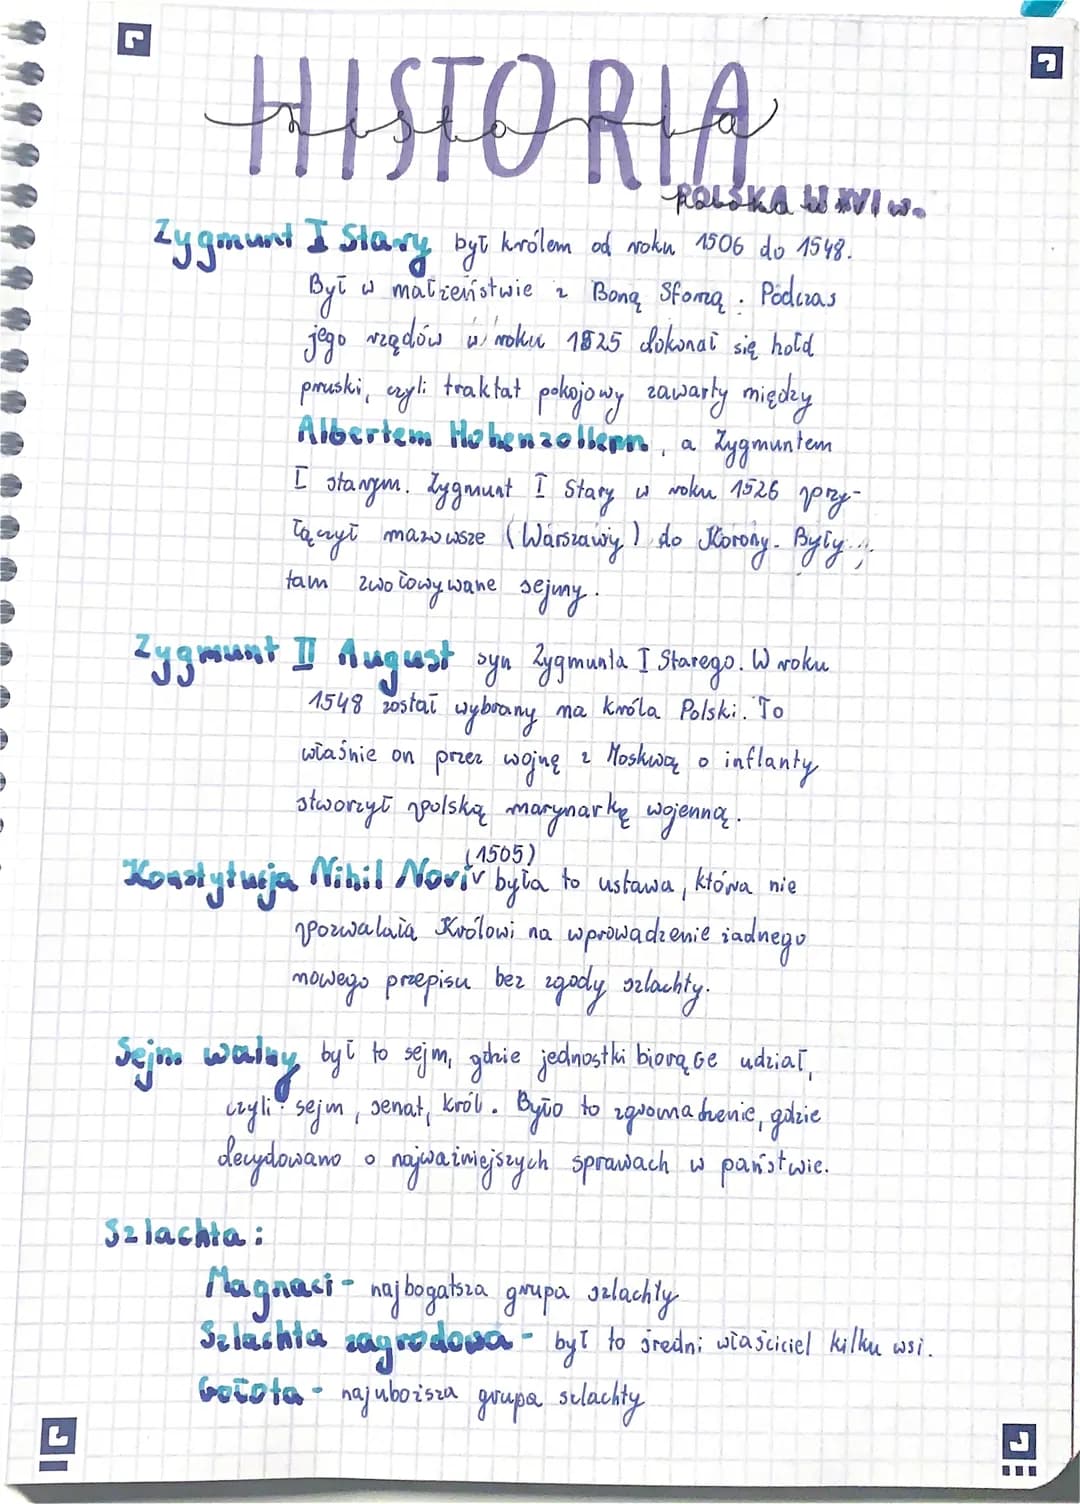 HISTORIA
historia
POLSKA W XVI w.
Zygmunt I Stary był królem od roku 1506 do 1548.
Był w małżeństwie z Boną Sforzą. Podczas
jego rządów w roku 1525 dokonał się hołd
pruski, czyli traktat pokojowy zawarty między
Albertem Hohenzollern, a Zygmuntem
I starym. Zygmunt I Stary w roku 1526 przy-
łączył mazowsze (Warszawy) do Korony. Były
tam zwoływane sejmy.
Zygmunt II August syn Zygmunta I Starego. W roku
1548 został wybrany na króla Polski. To
właśnie on przez wojnę z Moskwą o inflanty
stworzył polską marynarkę wojenną.
(1505)
Konstytucja Nihil Novi była to ustawa, która nie
pozwalała Królowi na wprowadzenie żadnego
nowego przepisu bez zgody szlachty.
Sejm walny był to sejm, gdzie jednostki biorą GE udział,
czyli: sejm, senat, król. Było to zgromadzenie, gdzie
decydowano o najważniejszych sprawach w państwie.
Szlachta:
Magnaci - najbogatsza grupa szlachty
Szlachta zagrodowa - był to średni właściciel kilku wsi.
Gołota - najuboższa grupa szlachty